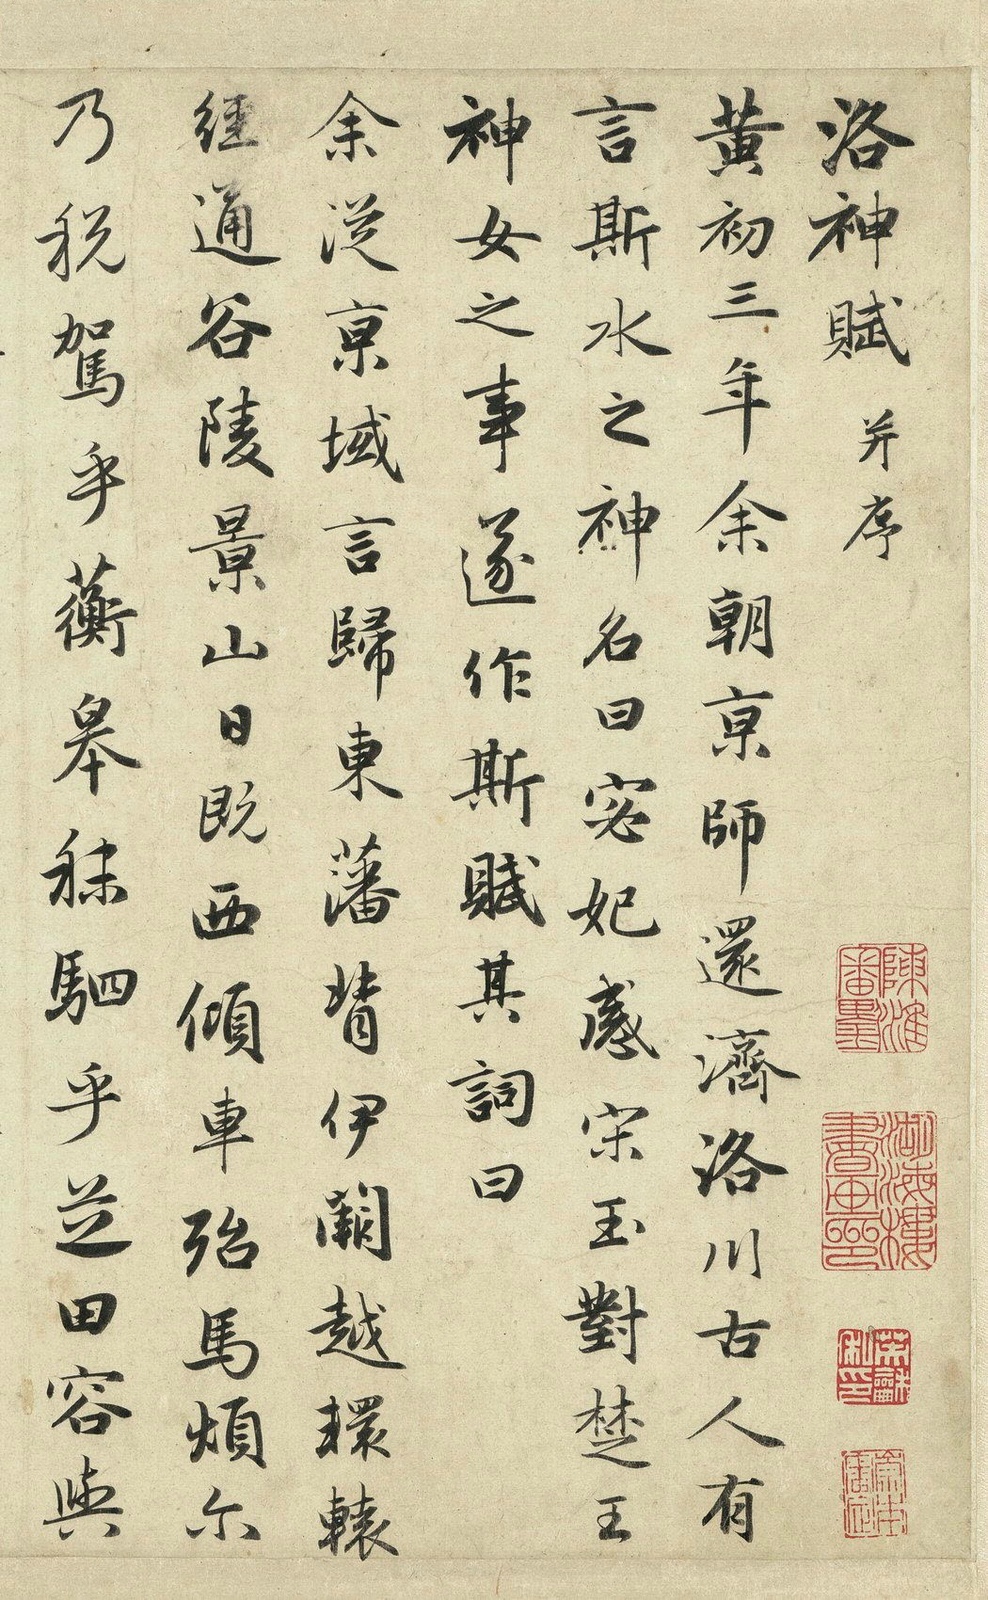 洛神賦 并序
黄初三年余朝京師還濟洛川古人有
言斯水之神名曰宓妃感宋玉對楚王
神女之事遂作斯賦其詞曰
余從京域言歸東藩背伊闕越轘轅
經通谷陵景山日既西傾車殆馬煩尒
乃税駕乎蘅皋秣駟乎芝田容與
陳淮審墨
湖海樓書画印